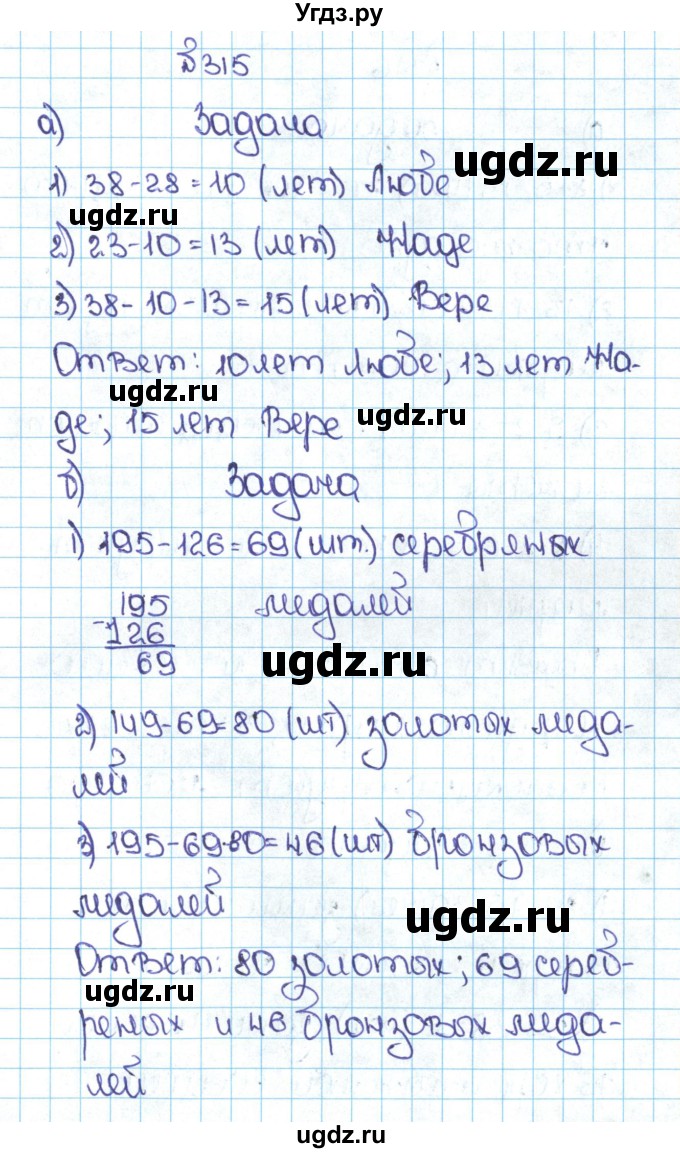 Угдз.ру
№315
а) Задача
ugdz.ru
1) 38-28=10 (лет) Любе
ugdz.ru
2) 23-10=13 (лет) Наде
3) 38-10-13=15 (лет) Вере
Ответ: 10 лет Любе; 13 лет На-
ugdz.ru
де; 15 лет Вере
ugdz.ru
б) Задача
1) 195-126=69 (шт.) серебряных
195 медалей
-126
69
ugdz.ru
2) 149-69=80 (шт) золотых меда-
лей
3) 195-69-80=46 (шт) бронзовых
медалей
ugdz.ru
Ответ: 80 золотых; 69 сереб-
ugdz.ru
реных и 46 бронзовых меда-
лей
ugdz.ru